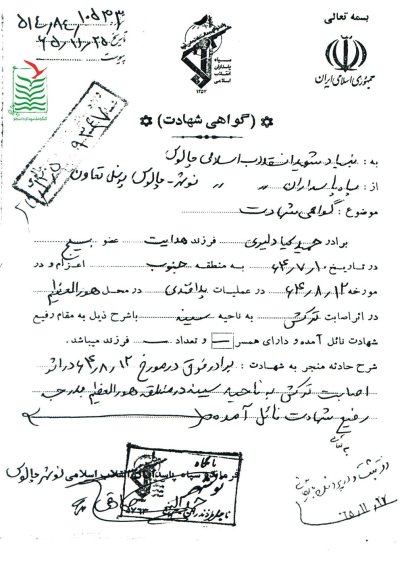 بسمه تعالی
جمهوری اسلامی ایران
سپاه پاسداران انقلاب اسلامی
۵۱۴/۸۴/۱۰۵۳۳
تاریخ ۶۵/۱۱/۲۵
پیوست
(گواهی شهادت)
به: بنیاد شهید انقلاب اسلامی چالوس
از: سپاه پاسداران " " نوشهر-چالوس پرسنلی تعاون
موضوع: گواهی شهادت
برادر حمید کیادلیری فرزند هدایت عضو بسیج
در تاریخ ۶۴/۷/۱۰ به منطقه جنوب اعزام و در
مورخه ۶۴/۸/۱۲ در عملیات پدافندی در محل هورالعظیم
در اثر اصابت ترکش به ناحیه سینه باشرح ذیل به مقام رفیع
شهادت نائل آمده و دارای همسر — و تعداد — فرزند میباشد.
شرح حادثه منجر به شهادت: برادر فوق در مورخ ۶۴/۸/۱۲ در اثر
اصابت ترکش به ناحیه سینه در منطقه هورالعظیم بدرجه
رفیع شهادت نائل آمده
فرمانده سپاه پاسداران انقلاب اسلامی نوشهر چالوس
پایگاه
نوشهر
۶۵/۱۱/۲۷